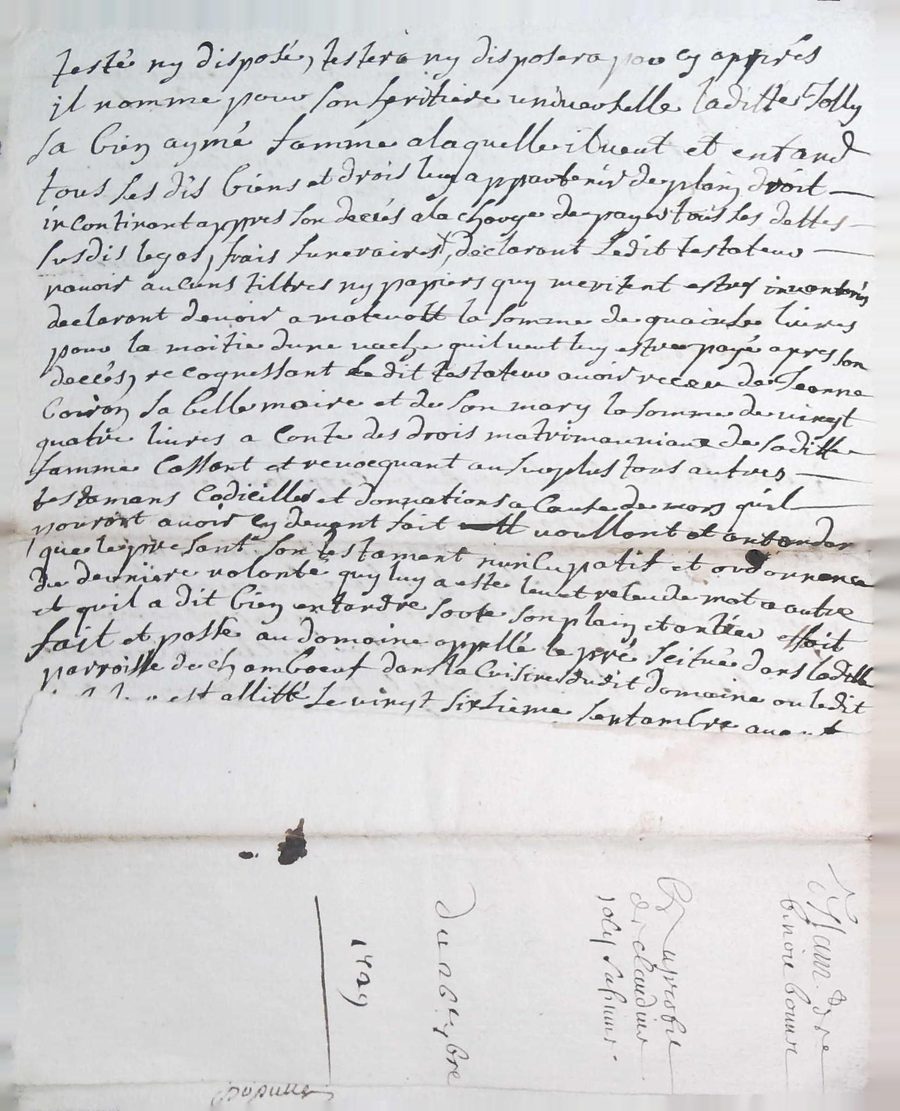 testé ny disposé, testera ny disposera pour cy apprés
il nomme pour son heritiere universelle laditte Jolly
sa bien aymé famme alaquelle il veut et entand
tous ses dis biens et drois luy appartenir de plain droit
incontinant appres son decés ala charge de payer tous ses dettes
susdis legas, frais funeraires, declarant ledit testateur
navoir aucuns tiltres ny papiers quy meritent estres inventoriés
declarant devoir a la somme de quainse livres
pour la moitie dune vache quil veut luy estre payé apres son
deccés, recognessant ledit testateur avoir receu de Jeanne
Coiron sa belle maire et de son mary la somme de vingt
quatre livres a conte des drois matrimauniaux de saditte
famme Cassant et revocquant au surplus tous autres
testamans Codicilles et donnations a Cause de mors quil
pouroit avoir cy devent fait voullant et antandant
que le presant son testament nuncupatif et ordonnence
de derniere volonté quy luy a este leu et releu de mot a autre
et quil a dit bien entandre sorte son plain et antier effait
fait et passé au domaine appellé le pré scitué dans laditte
parroisse de chambœuf dans la Cuisine dudit domaine ou ledit
est allitté Le vingt sixlieme septambre avant
Du 26 7bre
1729
de claudine
joly